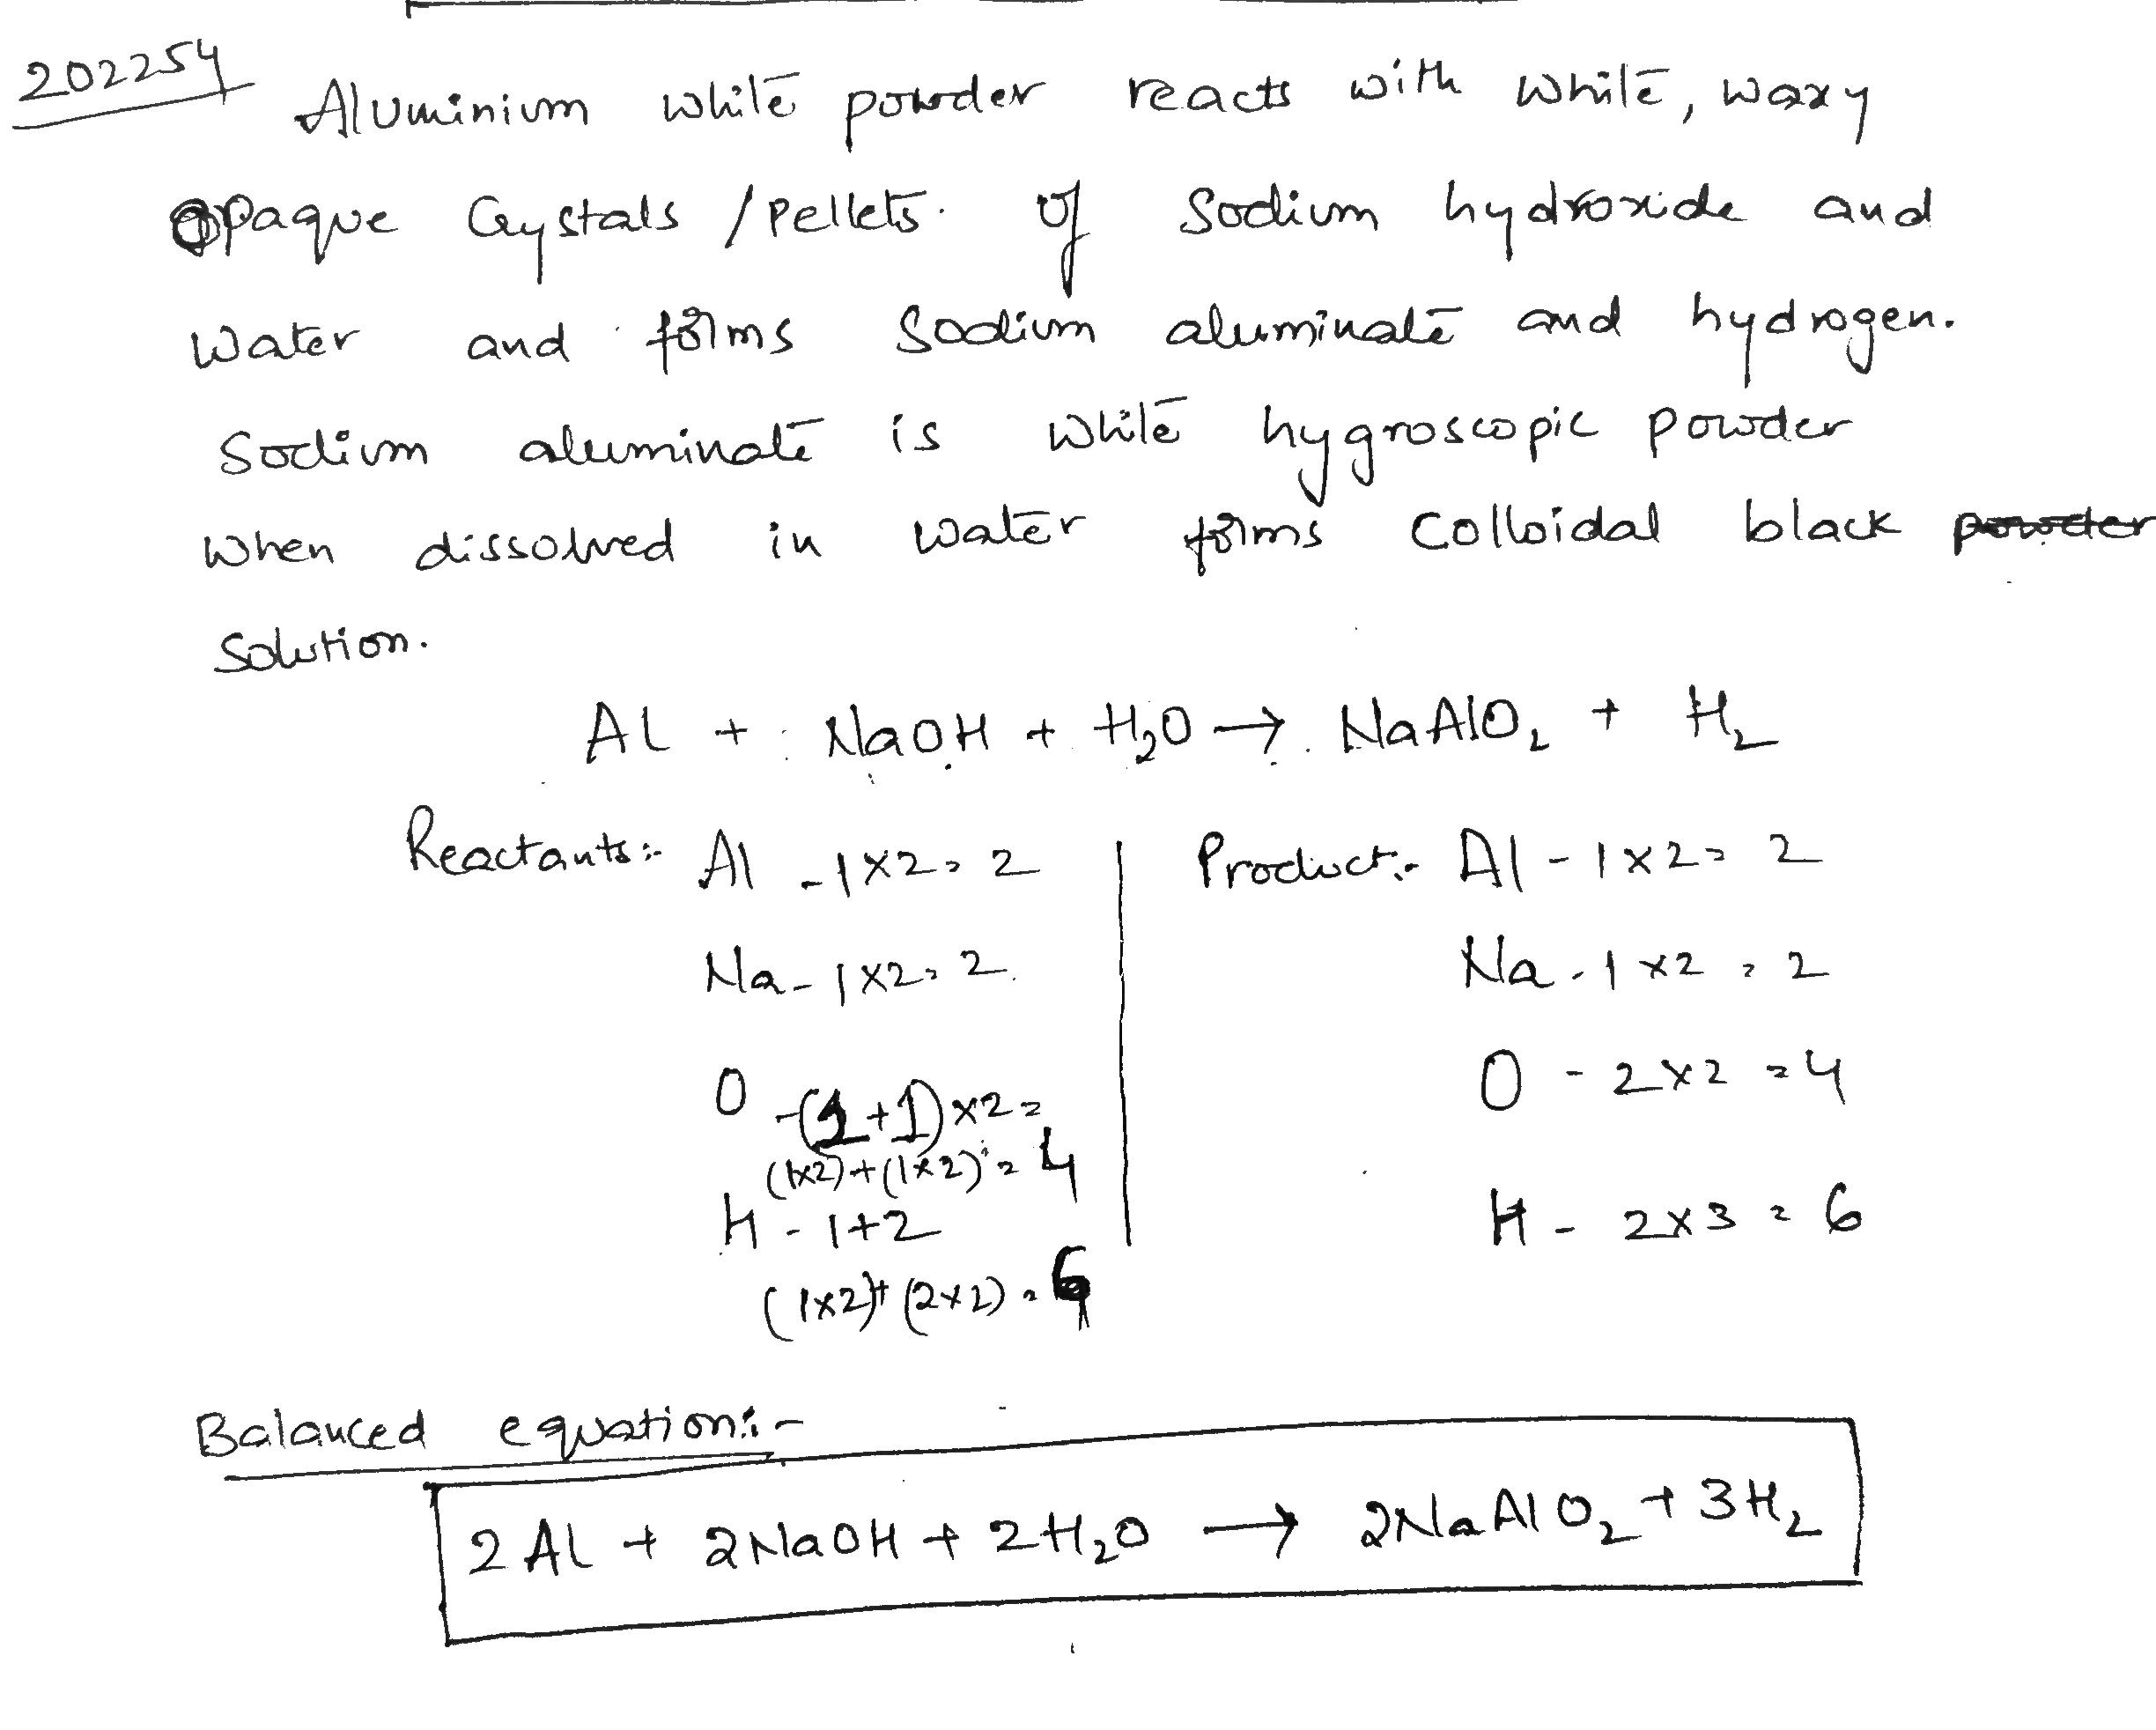 202254
Aluminium white powder reacts with white, waxy
Opaque Crystals / Pellets. of Sodium hydroxide and
Water and forms Sodium aluminate and hydrogen.
Sodium aluminate is white hygroscopic powder
when dissolved in water forms Colloidal black powder
Solution.
Al + NaOH + H₂O → NaAlO₂ + H₂
Reactants:- Al - 1×2 = 2 Product:- Al - 1×2 = 2
Na - 1×2 = 2 Na - 1×2 = 2
O - (1+1)×2 = O - 2×2 = 4
(1×2)+(1×2) = 4
H - 1+2 H - 2×3 = 6
(1×2)+(2×2) = 6
Balanced equation:-
2Al + 2NaOH + 2H₂O → 2NaAlO₂ + 3H₂